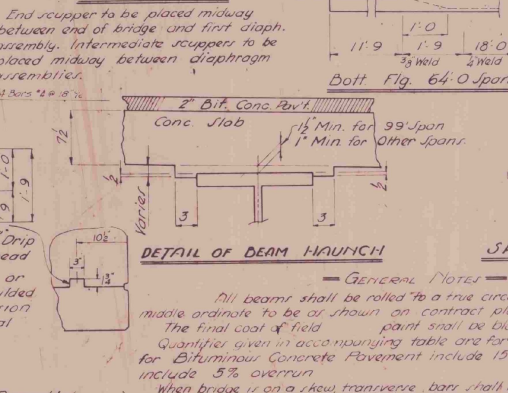 End scupper to be placed midway
between end of bridge and first diaph.
assembly. Intermediate scuppers to be
placed midway between diaphragm
assemblies.
1'-0
11'-9
1'-9
18'-0
3/8 Weld
1/4 Weld
Bott. Flg. 64'-0 Span
2" Bit. Conc. Pav't.
Conc. Slab
1½" Min. for 99' Span
1" Min. for Other Spans.
7½
½
½
Varies
3
3
1'-0
1'-9
9
Drip
10½"
3"
1¾"
or
DETAIL OF BEAM HAUNCH
GENERAL NOTES
All beams shall be rolled to a true circ
middle ordinate to be as shown on contract pl
The final coat of field paint shall be bl
Quantities given in accompanying table are for
for Bituminous Concrete Pavement include 15
include 5% overrun
When bridge is on a skew, transverse bars shall